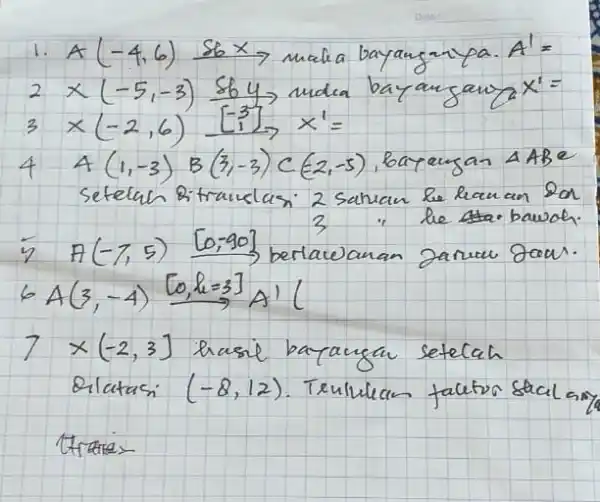 1. A (-4,6) Sb x → maka bayangannya. A' =
2 X (-5,-3) Sb y → maka bayangannya X' =
3 X (-2,6) [-3 1] → X' =
4 A (1,-3) B (3,-3) C (-2,-5), bayangan △ ABC
setelah ditranslasi 2 satuan ke kanan dan
3 " ke bawah.
5 A (-7, 5) [0,-90] → berlawanan jarum jam.
6 A (3, -4) [0, k=3] → A' (
7 X (-2, 3] hasil bayangan setelah
dilatasi (-8, 12). Tentukan faktor skalanya